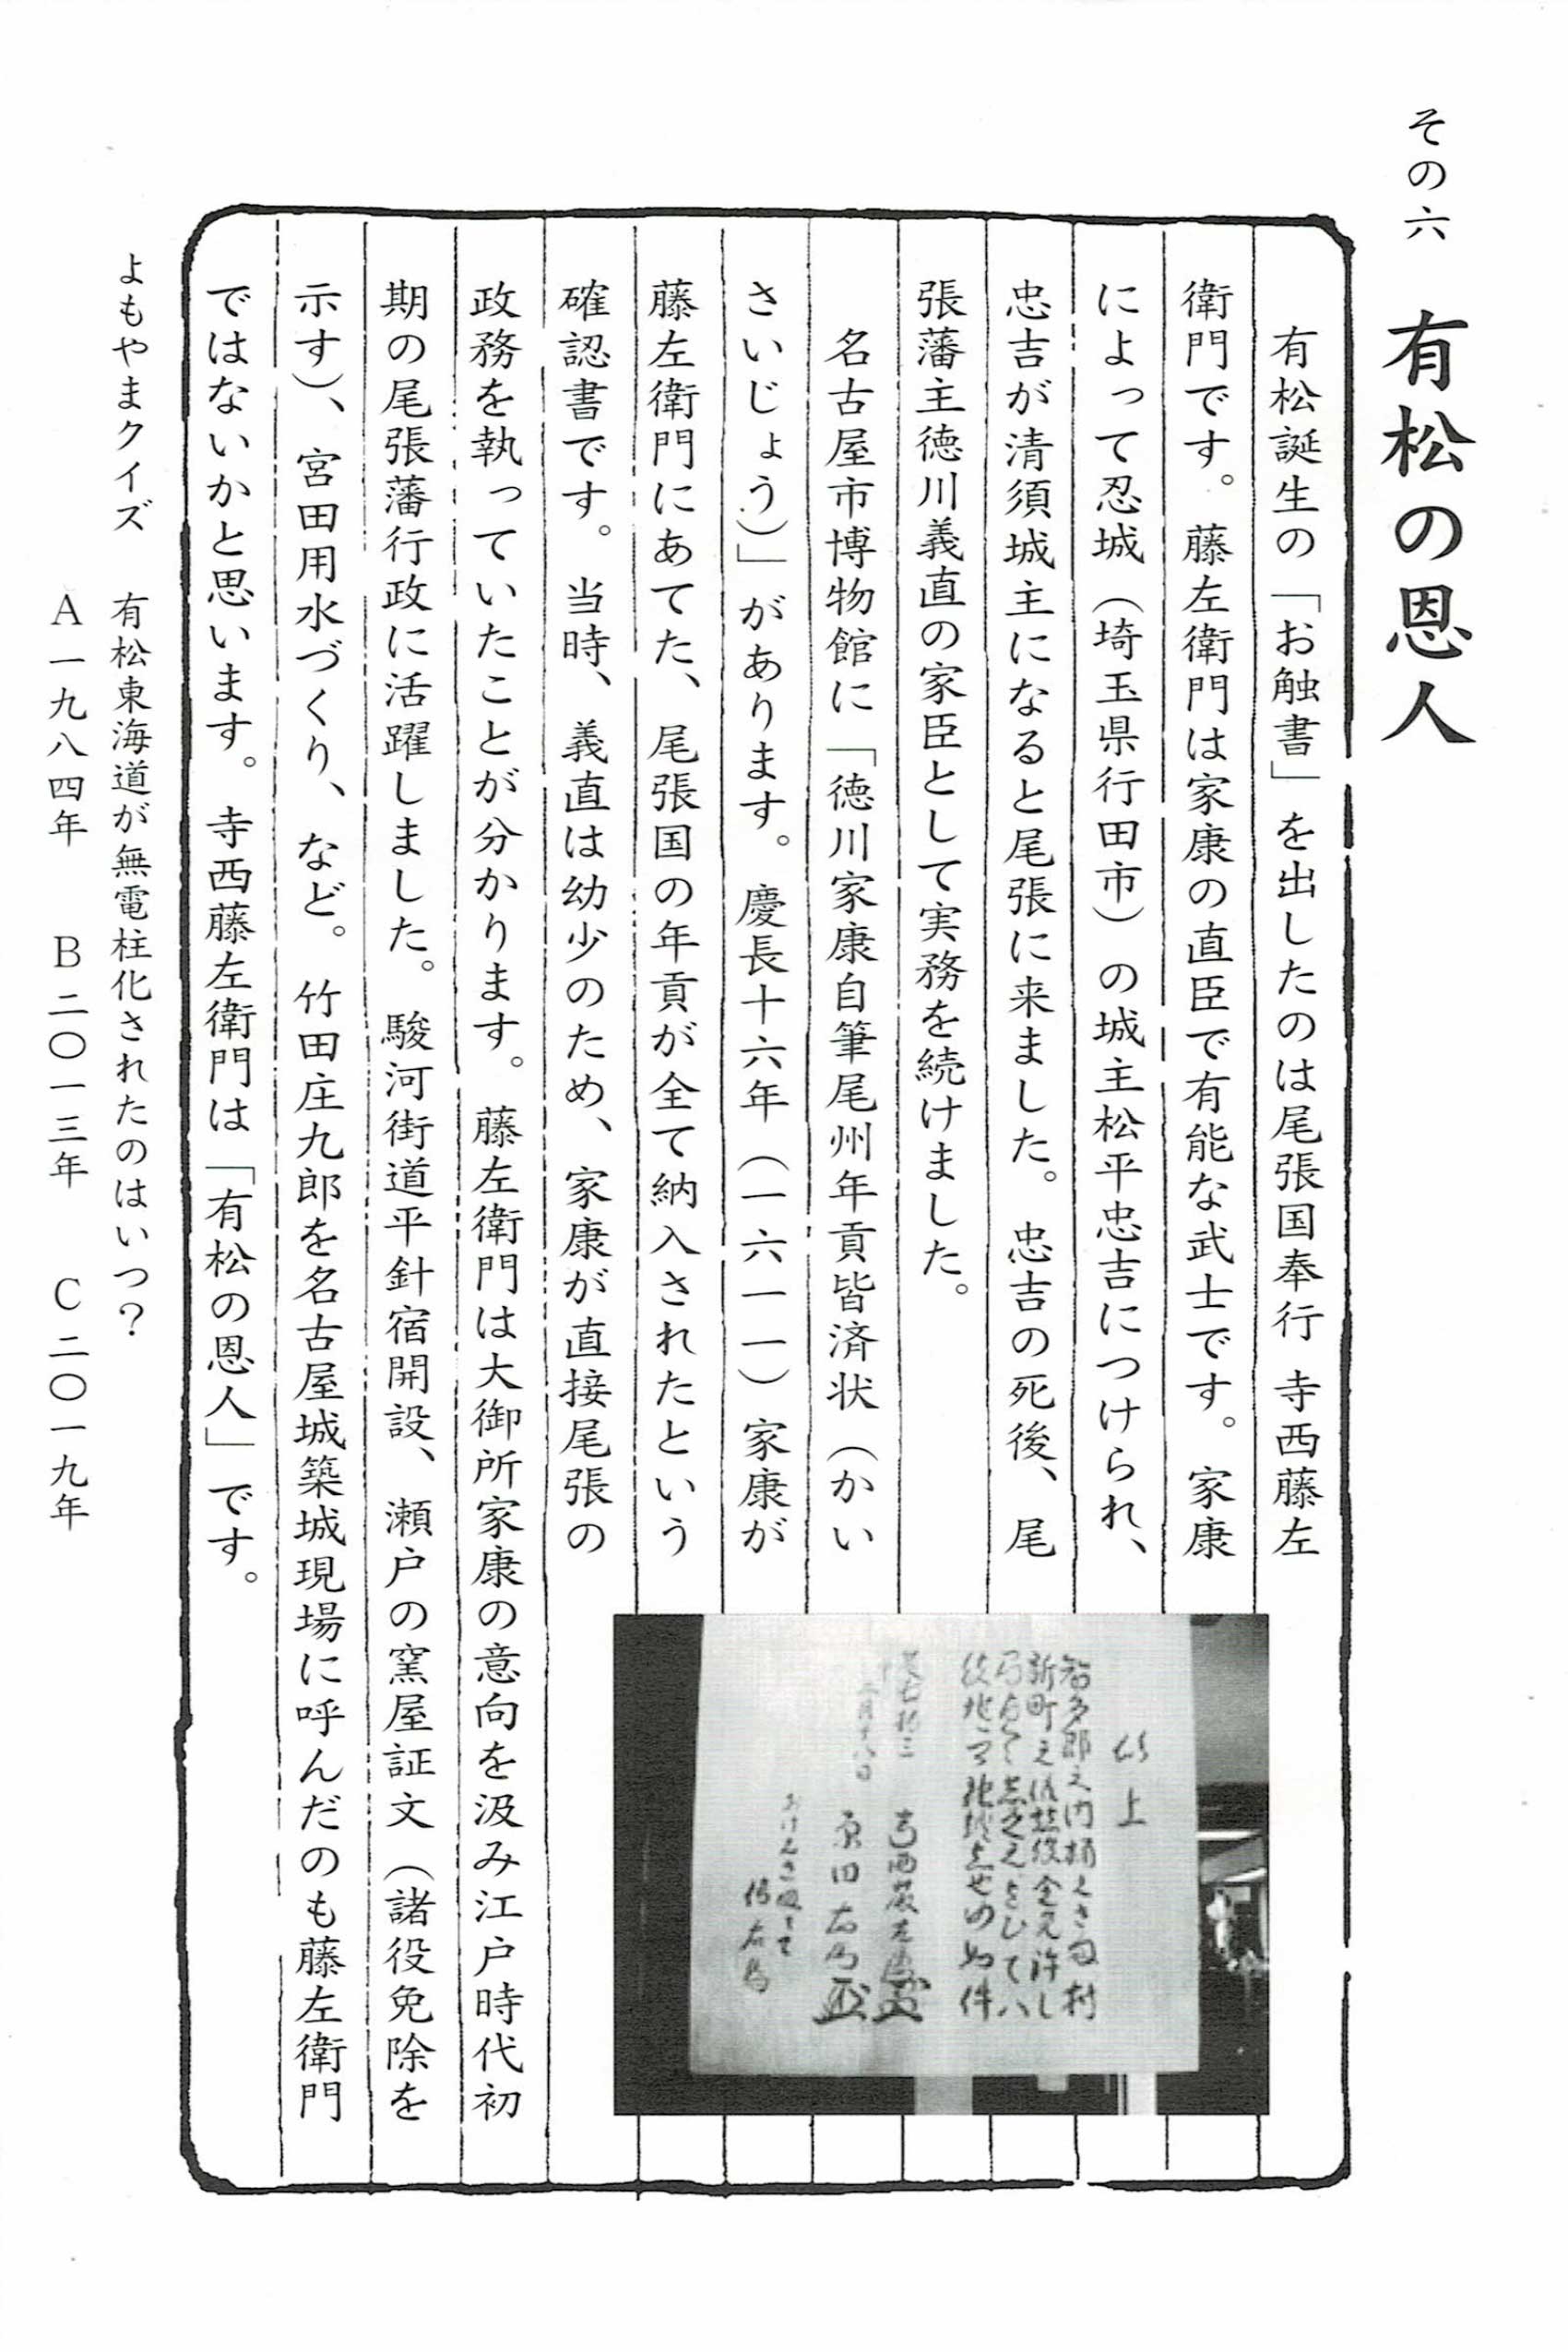 その六　有松の恩人
　有松誕生の「お触書」を出したのは尾張国奉行 寺西藤左
衛門です。藤左衛門は家康の直臣で有能な武士です。家康
によって忍城（埼玉県行田市）の城主松平忠吉につけられ、
忠吉が清須城主になると尾張に来ました。忠吉の死後、尾
張藩主徳川義直の家臣として実務を続けました。
　名古屋市博物館に「徳川家康自筆尾州年貢皆済状（かい
さいじょう）」があります。慶長十六年（一六一一）家康が
藤左衛門にあてた、尾張国の年貢が全て納入されたという
確認書です。当時、義直は幼少のため、家康が直接尾張の
政務を執っていたことが分かります。藤左衛門は大御所家康の意向を汲み江戸時代初
期の尾張藩行政に活躍しました。駿河街道平針宿開設、瀬戸の窯屋証文（諸役免除を
示す）、宮田用水づくり、など。竹田庄九郎を名古屋城築城現場に呼んだのも藤左衛門
ではないかと思います。寺西藤左衛門は「有松の恩人」です。
以上
新町之
原田右衛門
よもやまクイズ　有松東海道が無電柱化されたのはいつ？
A 一九八四年　B 二〇一三年　C 二〇一九年